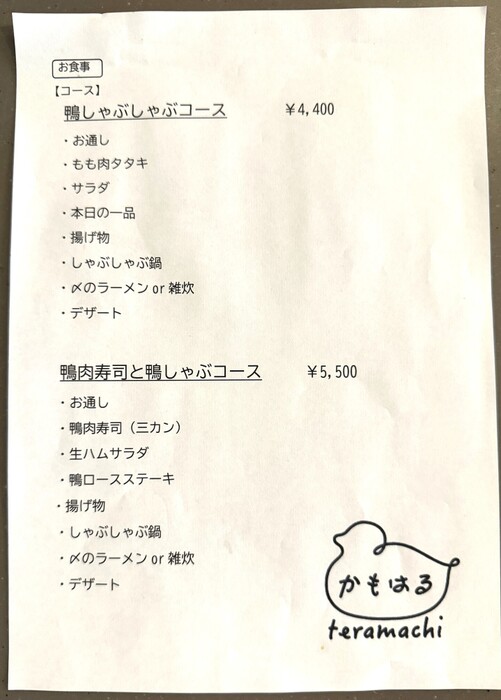 お食事
【コース】
鴨しゃぶしゃぶコース ¥4,400
・お通し
・もも肉タタキ
・サラダ
・本日の一品
・揚げ物
・しゃぶしゃぶ鍋
・〆のラーメン or 雑炊
・デザート
鴨肉寿司と鴨しゃぶコース ¥5,500
・お通し
・鴨肉寿司（三カン）
・生ハムサラダ
・鴨ロースステーキ
・揚げ物
・しゃぶしゃぶ鍋
・〆のラーメン or 雑炊
・デザート
かもはる
teramachi